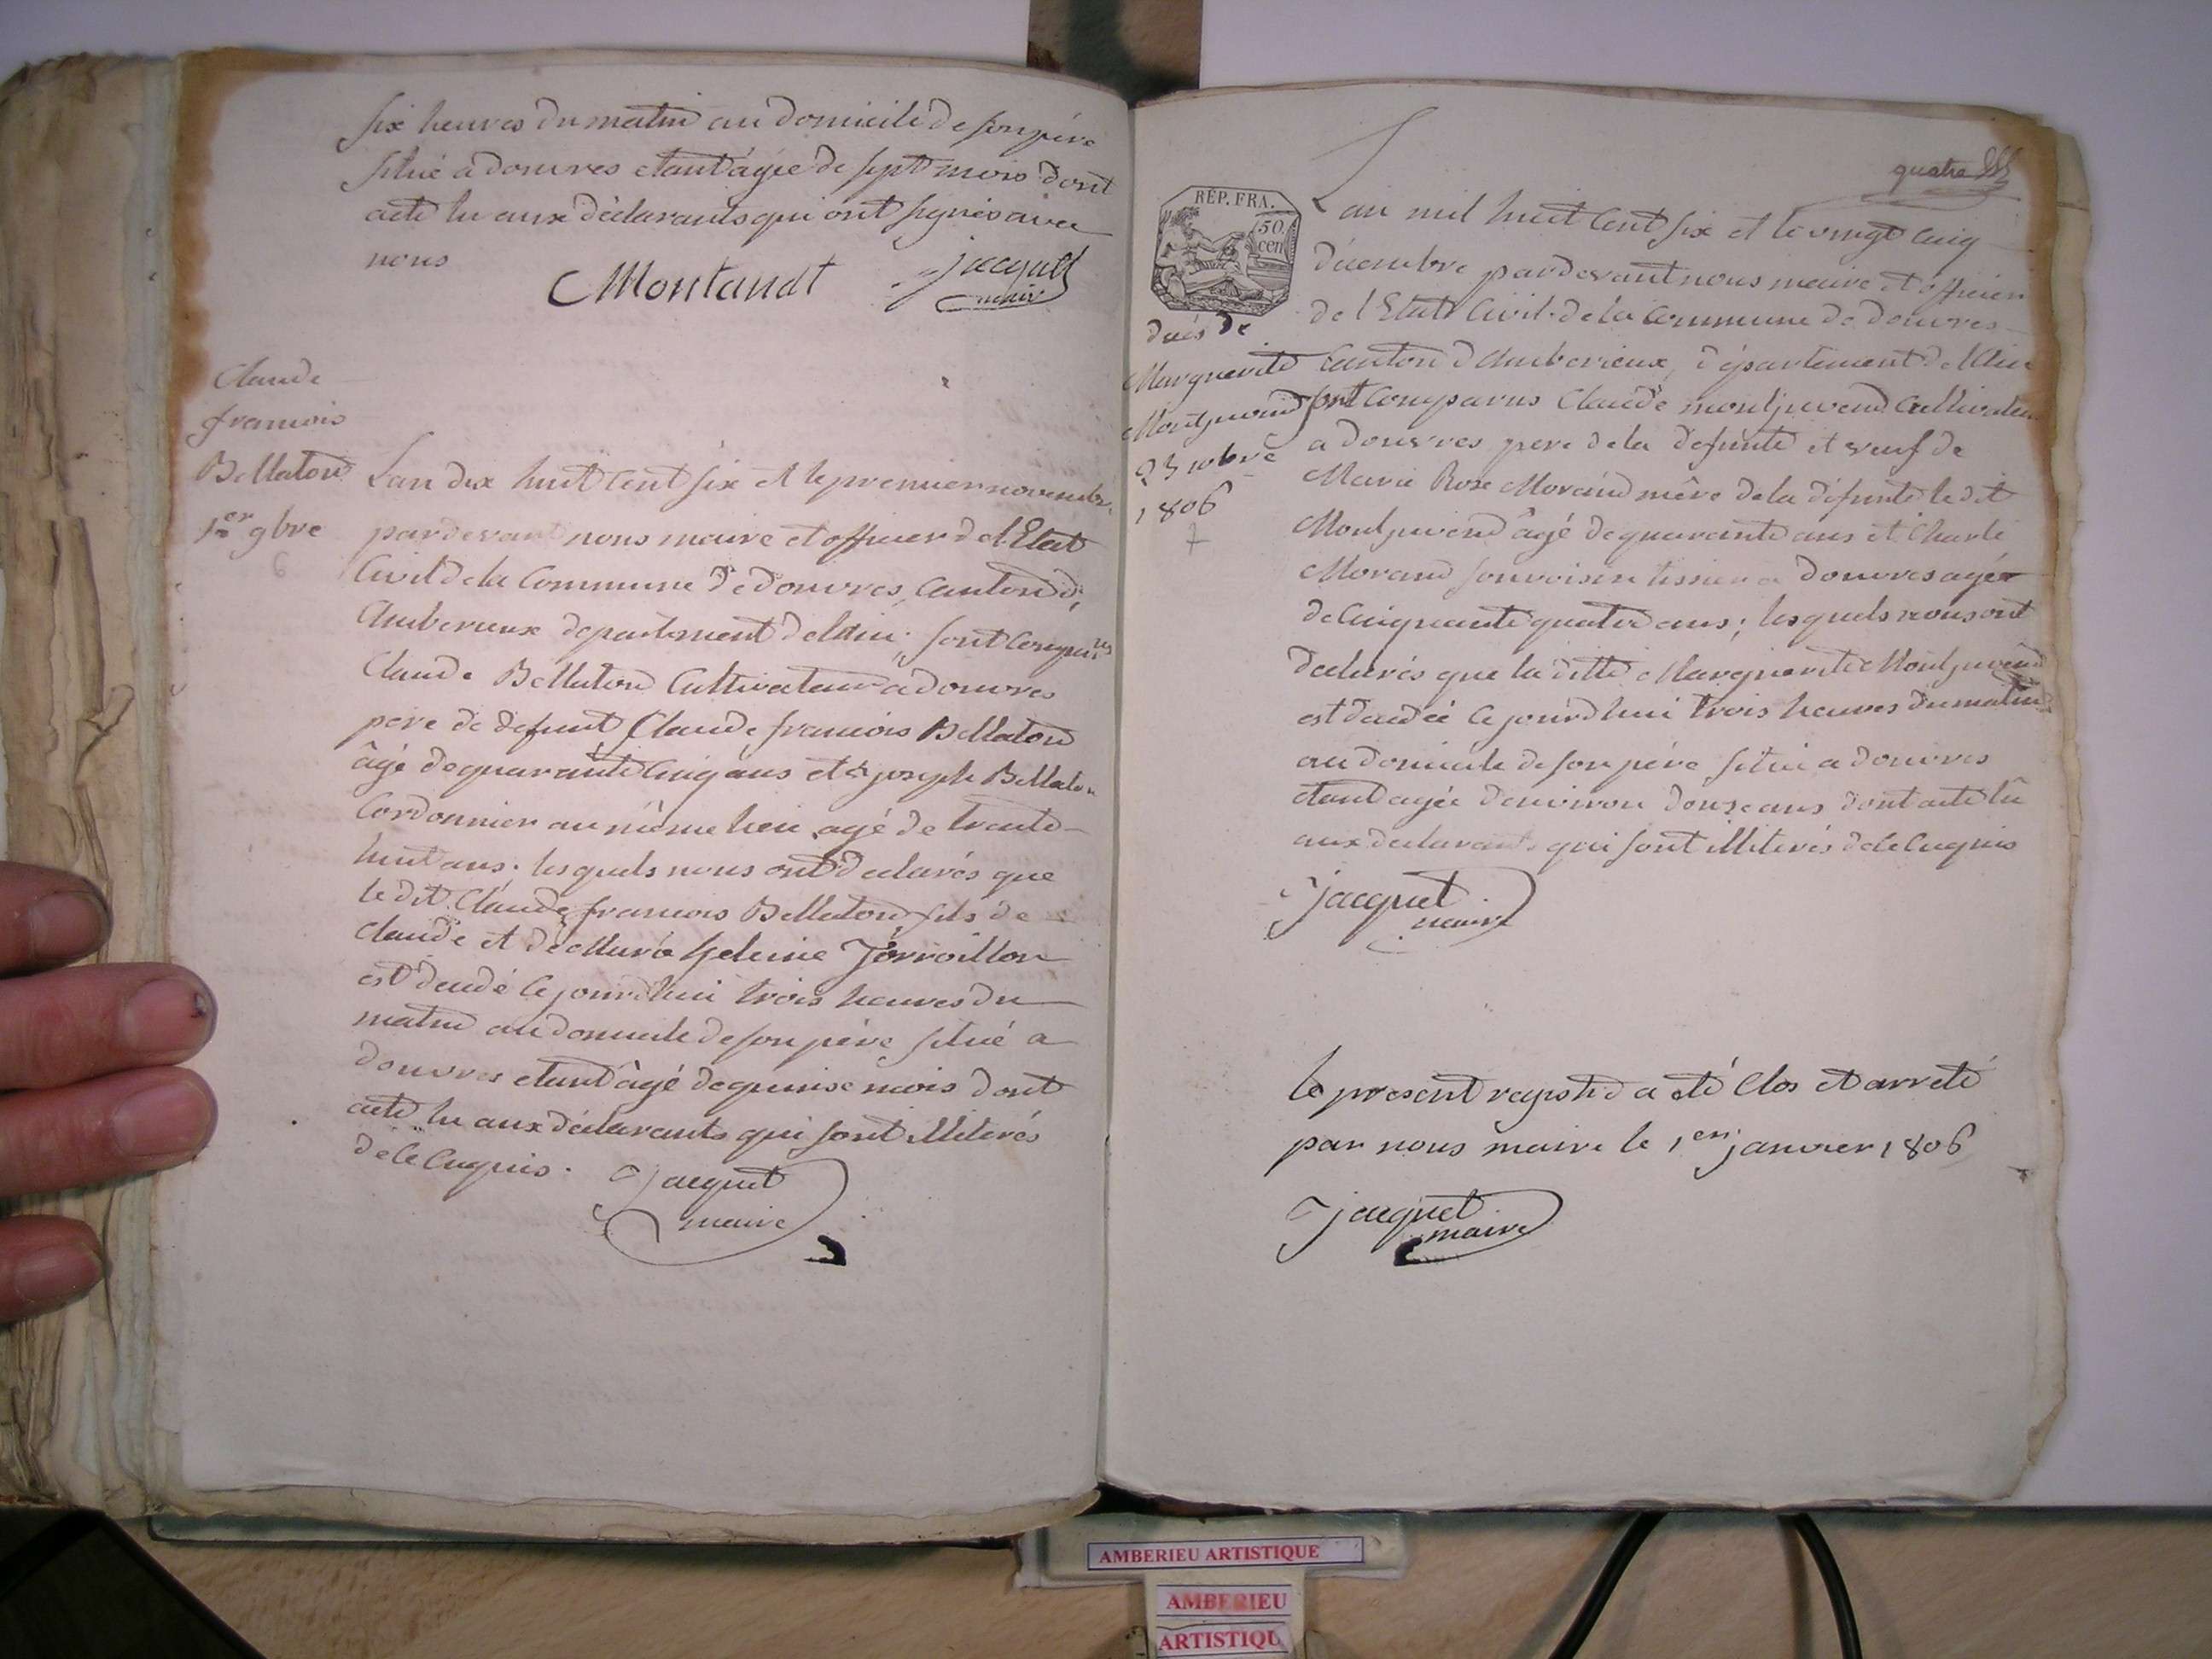 six heures du matin au domicile de son père
situé a douvres etant agée de sept mois dont
acte lu aux déclarants qui ont signés avec
nous
Montandt
jacquet
maire
Claude
francois
Bellaton
1er 9bre
6
Lan dix huit Cent six et le premier novembre
pardevant nous maire et officier de l'Etat
Civil de la Commune de douvres, Canton d'
Amberieux departement de l'ain; sont Comparus
Claude Bellaton Cultivateur a douvres
pere de defunt Claude francois Bellaton
âgé de quarante Cinq ans et joseph Bellaton
Cordonnier au même lieu agé de trente
huit ans. lesquels nous ont declarés que
le dit Claude francois Bellaton fils de
Claude et de Helene
est décédé Ce jourdhui trois heures du
matin au domicile de son père situé a
douvres etant âgé de quinse mois dont
acte lu aux déclarants qui sont illiterés
de Ce Enquis.
jacquet
maire
quatre
REP. FRA.
50
cen
Lan mil huit Cent six et le vingt Cinq
décembre pardevant nous maire et officier
de l'Etat Civil de la Commune de douvres
Canton d'Amberieux, département de l'Ain
sont Comparus Claude montjuvend Cultivateur
a douvres pere de la defunte et veuf de
Marie Rose Morand mère de la défunte le dit
Montjuvend âgé de quarante ans et Charle
Morand son voisin tissier a douvres agée
de Cinquante quatre ans; lesquels nous ont
declarés que la ditte Marguerite Montjuvend
est decedée Ce jourdhui trois heures du matin
au domicile de son père situé a douvres
etant agée denviron douse ans dont acte lû
aux declarants qui sont illiterés de Ce Enquis
décés de
Marguerite
Montjuvend
25 10bre
1806
7
jacquet
maire
le present registre a eté Clos et arreté
par nous maire le 1er janvier 1806
jacquet
maire
AMBERIEU ARTISTIQUE
AMBERIEU
ARTISTIQU